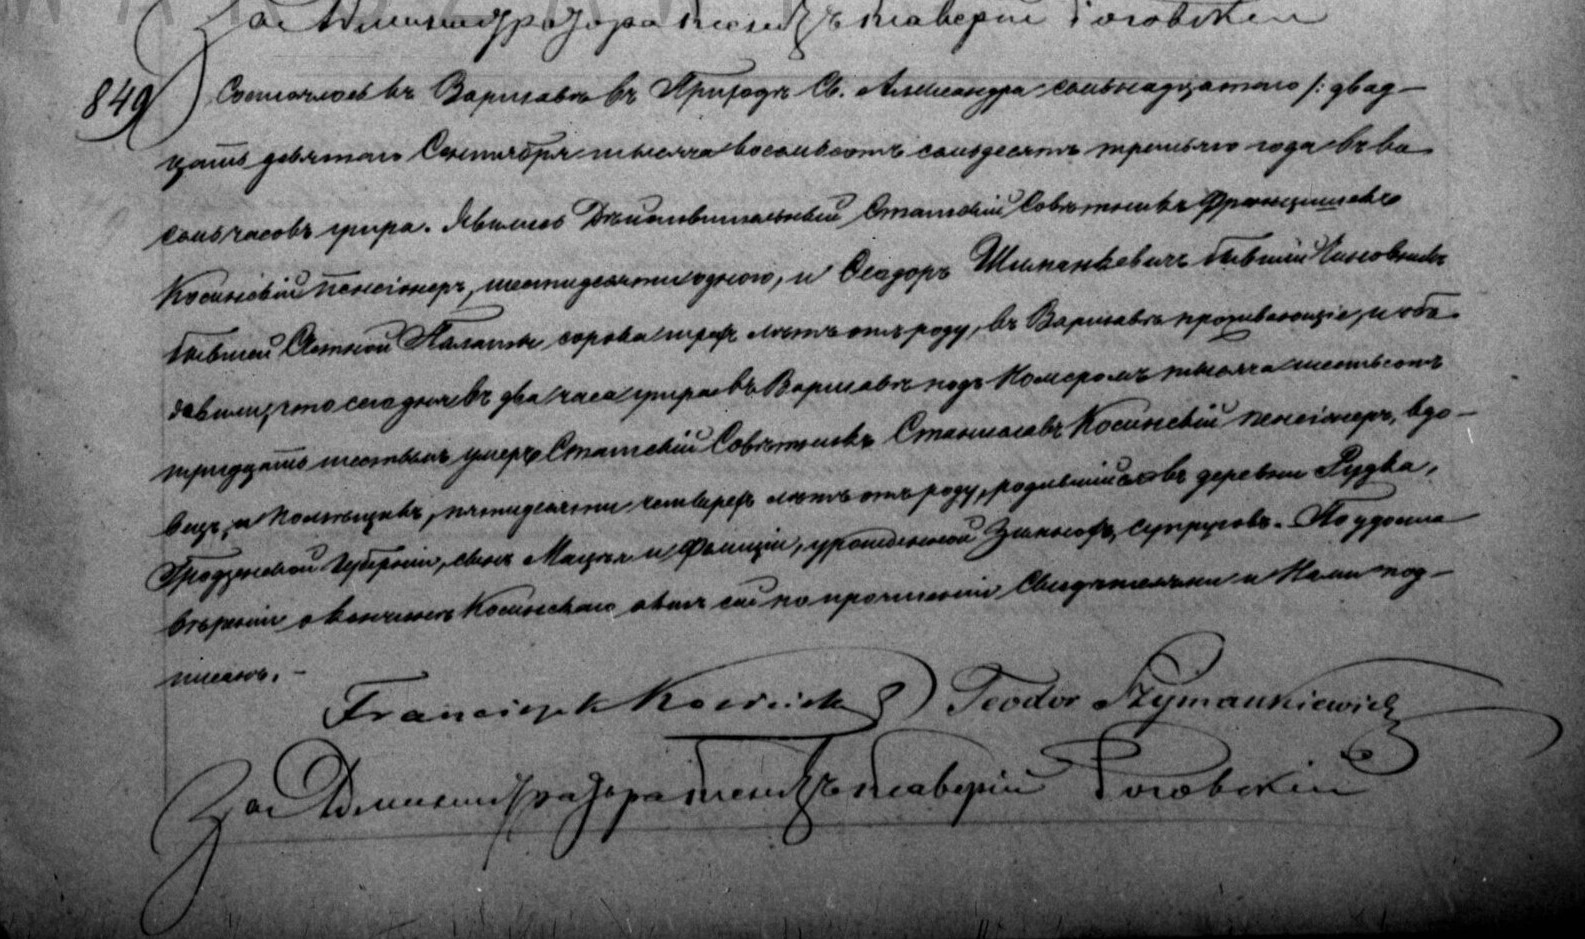 За Администратора Ксендзъ Ксаверій Роговскій
849) Состоялось въ Варшавѣ въ Приходѣ Св. Александра семьнадцатаго /: двад-
цать девятаго Сентября тысяча восемьсотъ семьдесятъ третьяго года въ во
семь часовъ утра. Явились Дѣйствительный Статскій Совѣтникъ Францишекъ
Косинскій пенсіонеръ, шестидесяти одного, и Ѳеодоръ Шиманкевичъ бывшій Чиновникъ
бывшей Счетной Палаты, сорока трехъ лѣтъ отъ роду, въ Варшавѣ проживающіе, и объ
явили, что сегодня въ два часа утра въ Варшавѣ подъ Номеромъ тысяча шестьсотъ
тридцать шестымъ умеръ Статскій Совѣтникъ Станиславъ Косинскій пенсіонеръ, вдо-
вецъ, и помѣщикъ, пятидесяти четырехъ лѣтъ отъ роду, родившійся въ деревни Рудка,
Гродненской Губерніи, сынъ Мацѣя и Фелиціи, урожденной супруговъ. По удосто
вѣреніи о кончинѣ Косинскаго актъ сей по прочтеніи Свидѣтелями и Нами под-
писанъ. -
Franciszek Kosiński Teodor Szymankiewicz
За Администратора Ксендзъ Ксаверій Роговскій